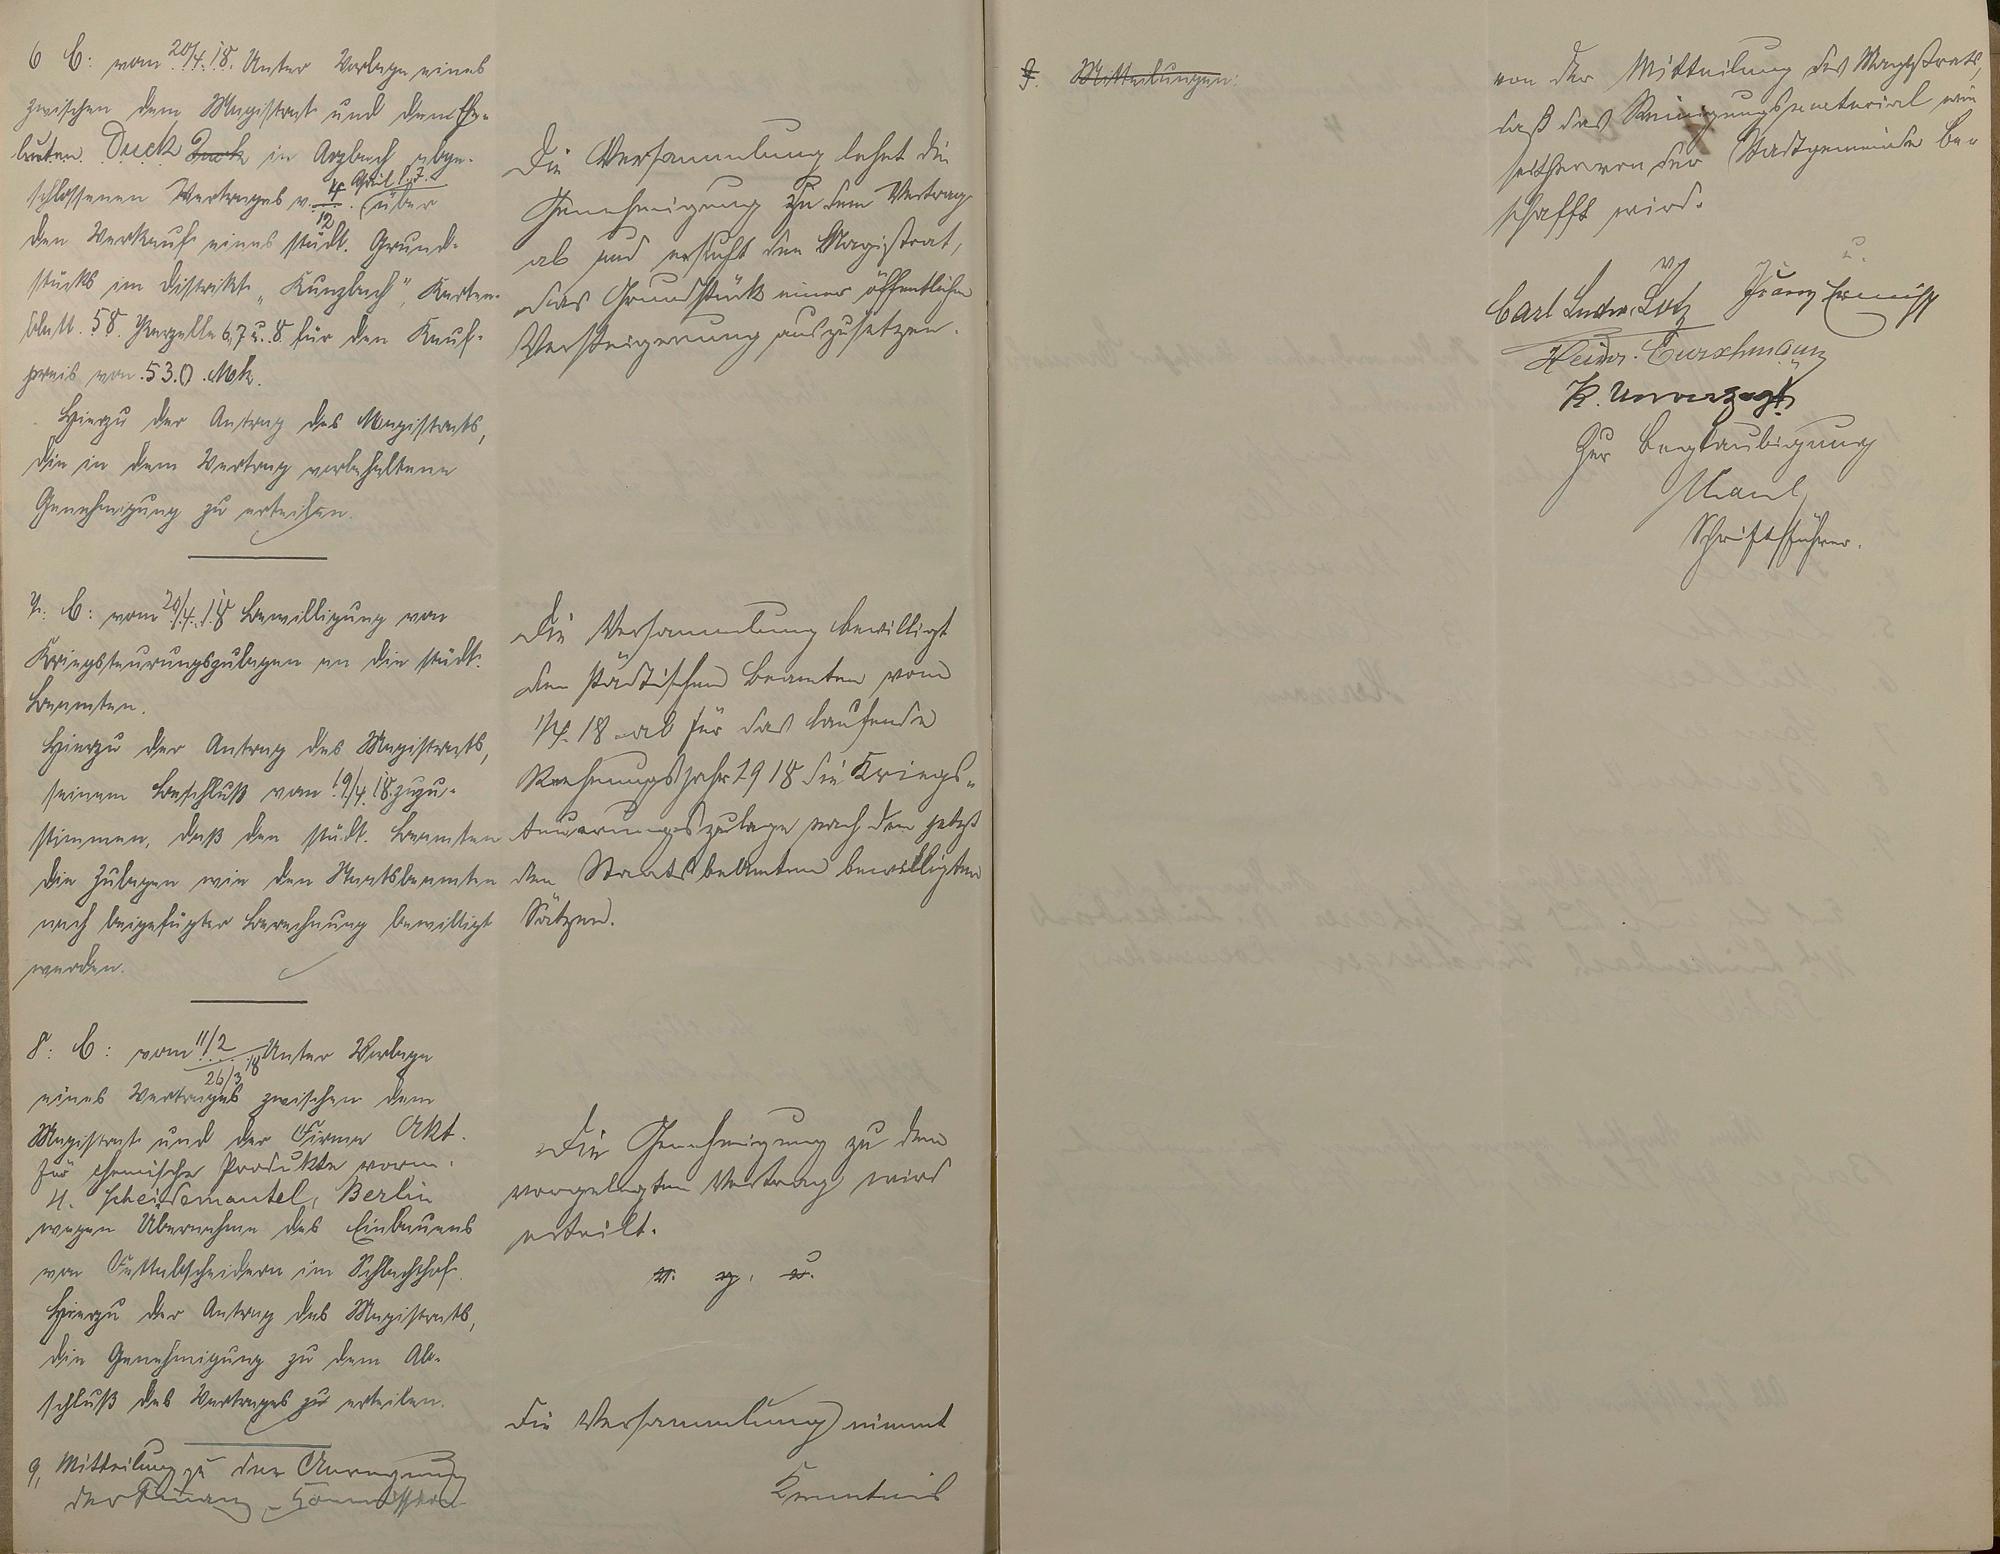 6 C: vom 20/4.18. Unter Vorlage eines
zwischen dem Magistrat und den Ehe-
leuten Duck Duck in Arzbach abge-
schlossenen Vertrages v. 4/12. April l. J. über
den Verkauf eines städt. Grund-
stücks im Distrikt „Kunzbach", Karten-
blatt 58 Parzelle 6, 7 u. 8 für den Kauf-
preis von 530 Mk.
Hierzu der Antrag des Magistrats,
die in dem Vertrag vorbehaltene
Genehmigung zu erteilen.
Die Versammlung lehnt die
Genehmigung zu dem Vertrag
ab und ersucht den Magistrat,
das Grundstück einer öffentlichen
Versteigerung auszusetzen.
7. C: vom 20/4.18 Bewilligung von
Kriegsteurungszulagen an die städt.
Beamten.
Hierzu der Antrag des Magistrats,
seinem Beschluß vom 19/4.18 zuzu-
stimmen, daß den städt. Beamten
die Zulagen wie den Staatsbeamten
nach beigefügter Berechnung bewilligt
werden.
Die Versammlung bewilligt
den städtischen Beamten vom
1/4.18 ab für das laufende
Rechnungsjahr 1918 die Kriegs-
teuerungszulage nach den jetzt
den Staatsbeamten bewilligten
Sätzen.
8: C: vom 11/2 26/3 18 Unter Vorlage
eines Vertrages zwischen dem
Magistrat und der Firma Akt.
für chemische Produkte vorm.
H. Scheidemantel, Berlin
wegen Übernahme des Einbauens
von Fettabscheidern im Schlachthof.
Hierzu der Antrag des Magistrats,
die Genehmigung zu dem Ab-
schluß des Vertrages zu erteilen.
Die Genehmigung zu dem
vorgelegten Vertrag wird
erteilt.
v. g. u.
9, Mitteilung zu der Anregung
der Finanz-Kommission
Die Versammlung nimmt
Kenntnis
9. Mitteilungen:
von der Mitteilung des Magistrats,
daß das Reinigungsmaterial wie
seither von der Stadtgemeinde be-
schafft wird.
v. g. u.
Carl Ludw. Lotz Franz Ermisch
Heinr. Curschmann
K. Unverzagt
Zur Beglaubigung
Kaul
Schriftführer.